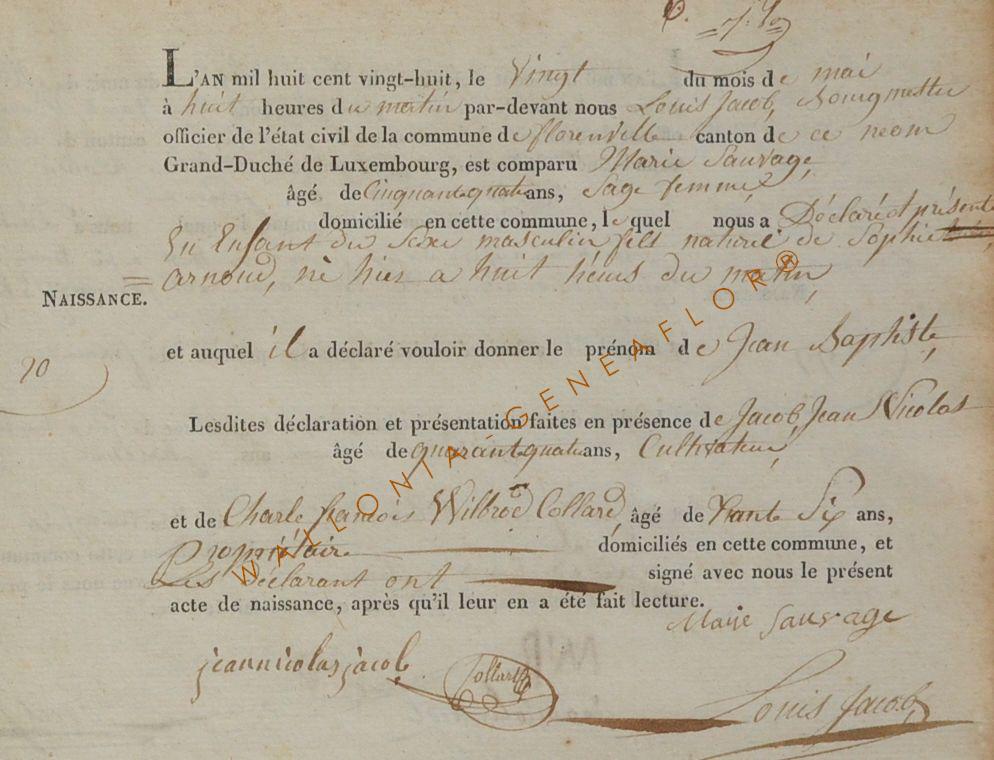 L'AN mil huit cent vingt-huit, le Vingt du mois de mai
à huit heures du matin par-devant nous Louis Jacob, Bourgmestre
officier de l'état civil de la commune de florenville canton de ce nom
Grand-Duché de Luxembourg, est comparu Marie Sauvage,
âgé de Cinquantequatre ans, Sage femme,
domicilié en cette commune, le quel nous a Déclaré et présenté
Un Enfant du Sexe masculin fils naturel de Sophie
arnoud, né hier a huit heurs du matin,
NAISSANCE.
et auquel il a déclaré vouloir donner le prénom de Jean Baptiste,
20
Lesdites déclaration et présentation faites en présence de Jacob, Jean Nicolas
âgé de quarantequatre ans, Cultivateur,
et de Charle francois Wilbrod Collard, âgé de trante Six ans,
Propriétaire domiciliés en cette commune, et
Les Déclarant ont signé avec nous le présent
acte de naissance, après qu'il leur en a été fait lecture.
Marie Sauvage
jeannicolas jacob
Collard
Louis Jacob
WALLONIA-GENEAFLOR®